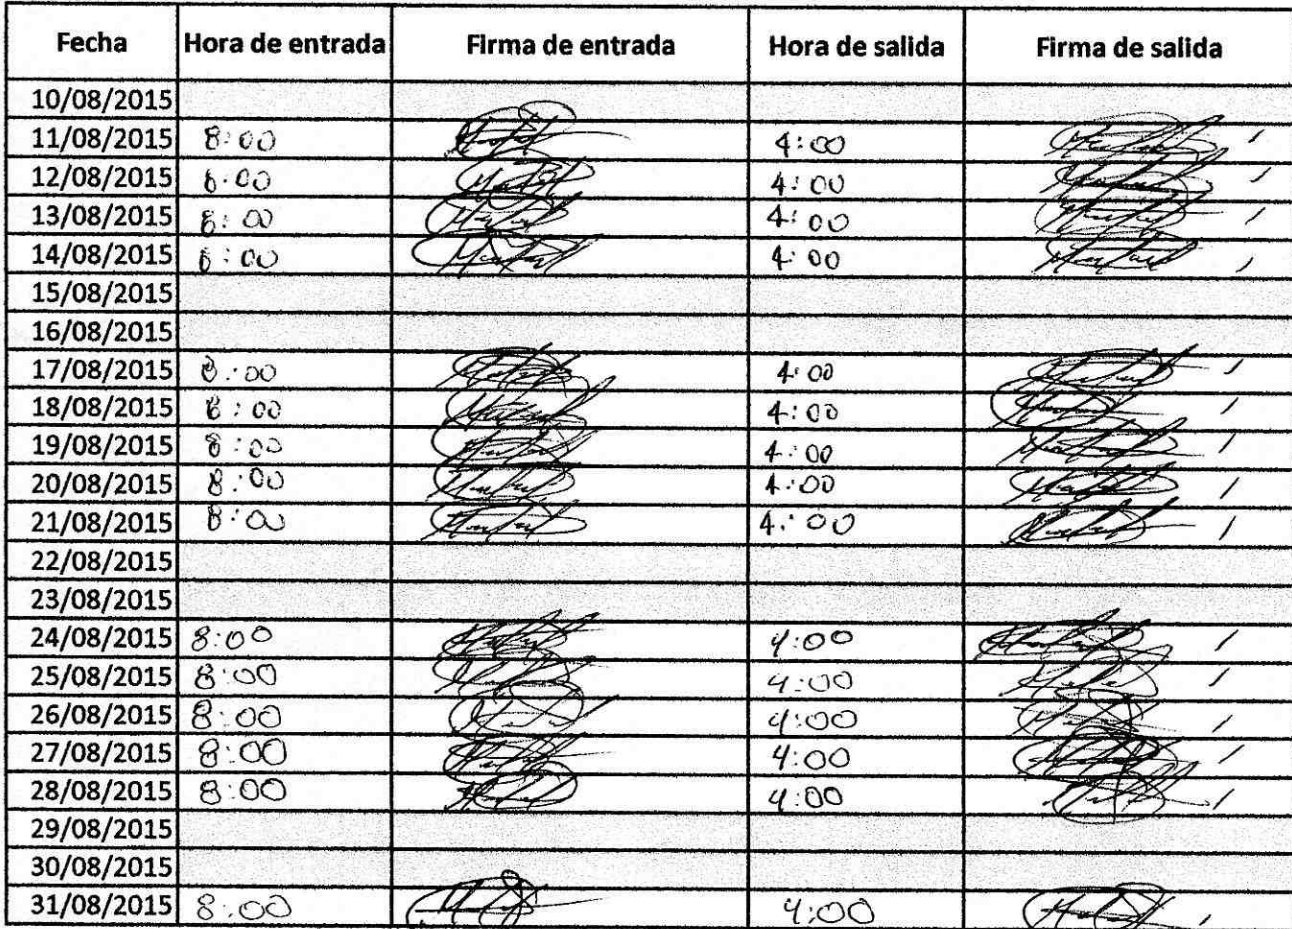 Fecha Hora de entrada Firma de entrada Hora de salida Firma de salida
10/08/2015
11/08/2015 8:00 4:00
12/08/2015 8:00 4:00
13/08/2015 8:00 4:00
14/08/2015 8:00 4:00
15/08/2015
16/08/2015
17/08/2015 8:00 4:00
18/08/2015 8:00 4:00
19/08/2015 8:00 4:00
20/08/2015 8:00 4:00
21/08/2015 8:00 4:00
22/08/2015
23/08/2015
24/08/2015 8:00 4:00
25/08/2015 8:00 4:00
26/08/2015 8:00 4:00
27/08/2015 8:00 4:00
28/08/2015 8:00 4:00
29/08/2015
30/08/2015
31/08/2015 8:00 4:00